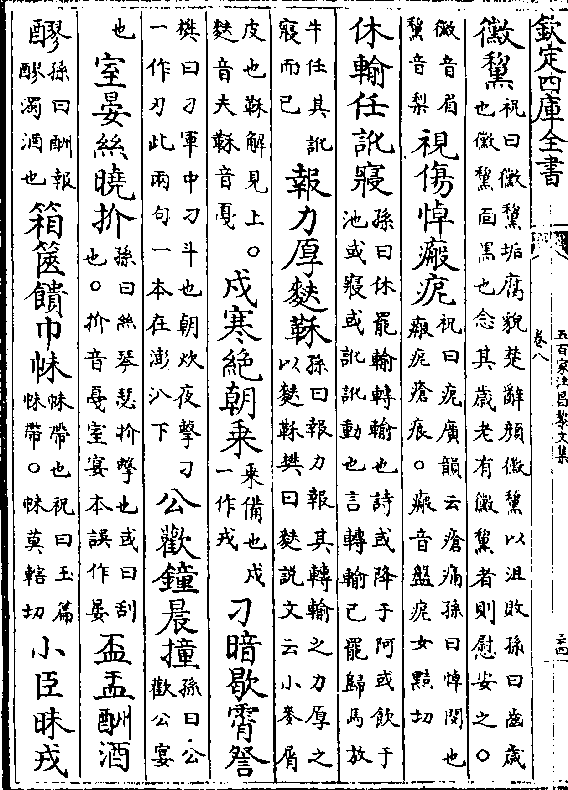 欽定四庫全書
五百家注昌黎文集
卷八
二四
黴黧祝曰黴黧垢腐貌楚辭顔黴黧以沮敗孫曰齒歲也黴黧面黒也念其歲老有黴黧者則慰安之。
黴音眉黧音梨視傷悼瘢痆祝曰痆廣韻云瘡痛孫曰悼閔也瘢痆瘡痕。瘢音盤痆女黠切
休輸任訛寢孫曰休罷輸轉輸也詩或降于阿或飲于池或寢或訛訛動也言轉輸已罷歸馬放
牛任其訛寢而已報力厚麩䅥孫曰報力報其轉輸之力厚之以麩䅥樊曰麩說文云小麥屑
皮也䅥解見上。麩音夫䅥音戛戍寒絶朝乗乗備也戍一作戎刁暗歇宵詧
樊曰刁軍中刁斗也朝炊夜擊刁一作刃此兩句一本在澎汃下公歡鐘晨撞孫曰公歡公宴
也室晏絲曉扴孫曰絲琴瑟扴擊也或曰刮也。扴音戛室宴本誤作晏盃盂酬酒
醪孫曰酬報醪濁酒也箱篋饋巾帓帓帶也祝曰玉篇帓帶。帓莫轄切小臣昧戎